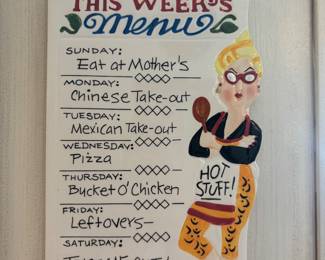 THIS WEEK'S
Menu
SUNDAY:
Eat at Mother's
MONDAY:
Chinese Take-out
TUESDAY:
Mexican Take-out
WEDNESDAY:
Pizza
THURSDAY:
Bucket O' Chicken
FRIDAY:
Leftovers—
SATURDAY:
HOT
STUFF!